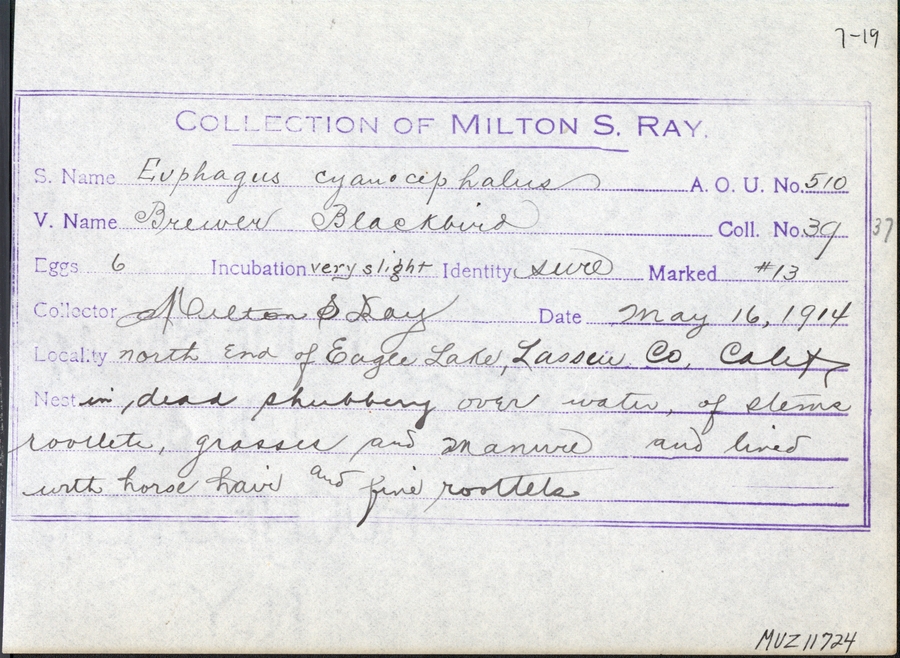 7-19
COLLECTION OF MILTON S. RAY.
S. Name Euphagus cyanocephalus A. O. U. No. 510
V. Name Brewer Blackbird Coll. No. 39 37
Eggs 6 Incubation very slight Identity sure Marked #13
Collector Milton S Ray Date May 16, 1914
Locality north End of Eagle Lake, Lassen Co, Calif
Nest in dead shubbery over water, of stems
rootlets, grasses and manure and lined
with horse hair and fine rootlets
MVZ 11724